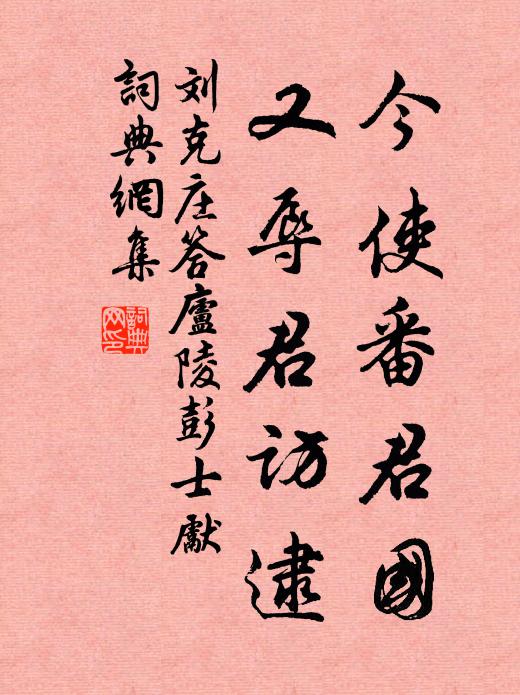 今使番君國
又辱君访逮
刘克庄答廬陵彭士獻
詞典網集
詞典网印